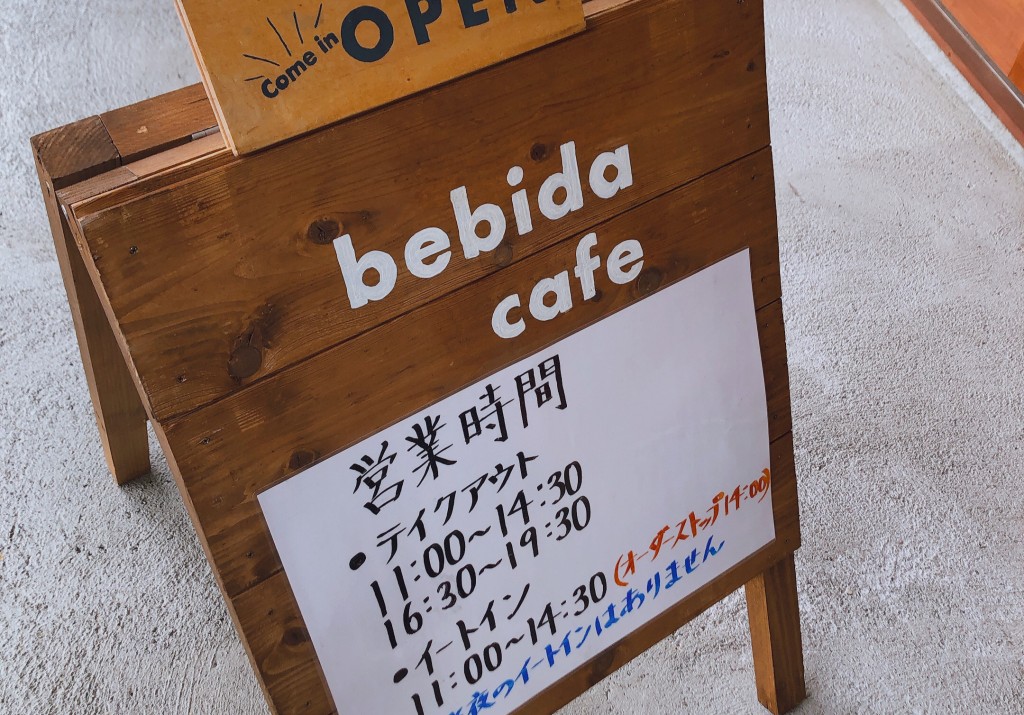 Come in OPEN
bebida
cafe
営業時間
● テイクアウト
11:00～14:30
16:30～19:30
● イートイン
11:00～14:30 (オーダーストップ14:00)
※夜のイートインはありません